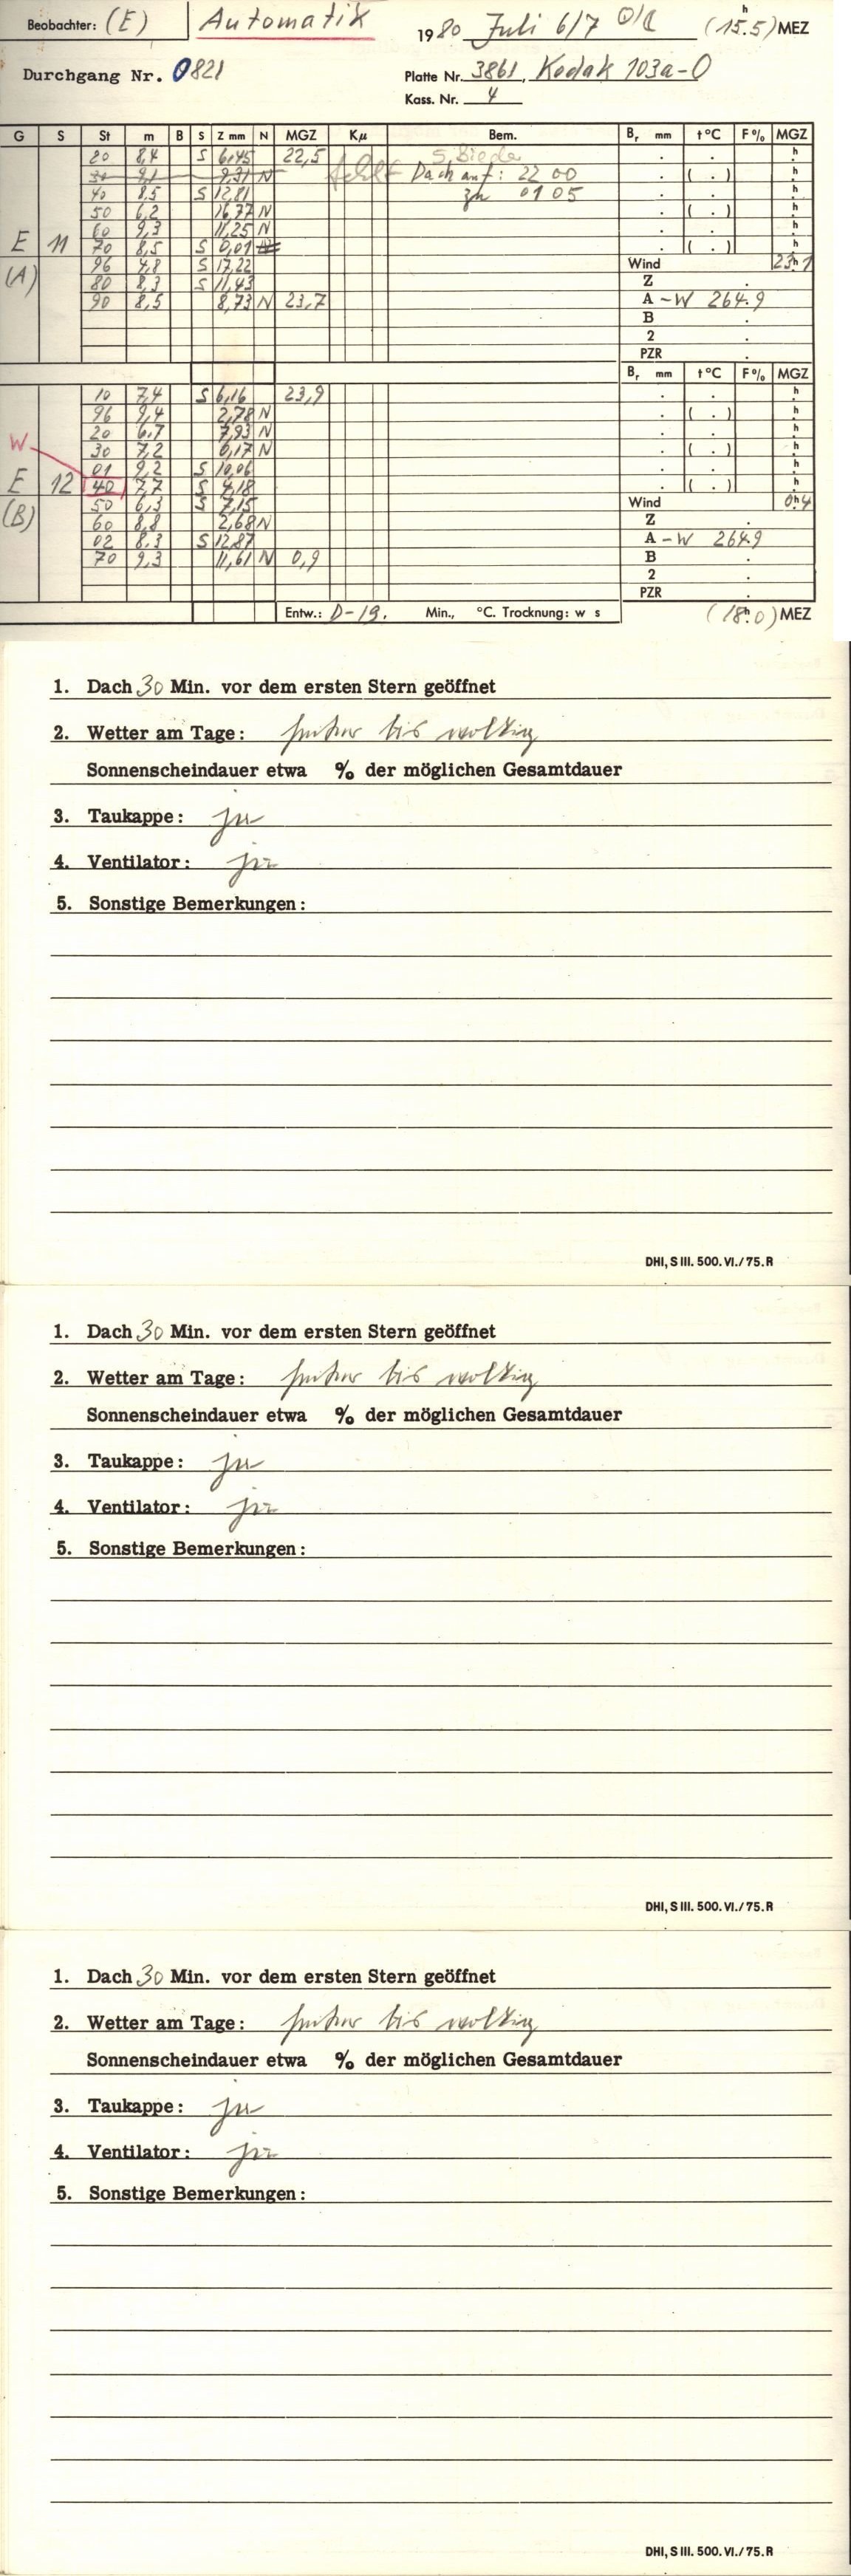 Beobachter: (E) Automatik 1980 Juli 6/7 (15.5) h MEZ
Durchgang Nr. 0821 Platte Nr. 3861, Kodak 103a-O
Kass. Nr. 4
G S St m B S Z mm N MGZ Kμ Bem. Br mm t°C F% MGZ
20 8,4 S 6,45 22,5 . . h
30 9,1 9,31 N fehlt Dach auf: 22 00 . ( . ) h
40 8,5 S 12,81 zu 01 05 . . h
50 6,2 16,77 N . ( . ) h
60 9,3 11,25 N . . h
E 11 70 8,5 S 0,01 . ( . ) h
(A) 96 4,8 S 17,22 Wind 23h1
80 8,3 S 11,43 Z .
90 8,5 8,73 N 23,7 A -W 264.9
B .
2 .
PZR .
Br mm t°C F% MGZ
10 7,4 S 6,16 23,9 . . h
96 9,4 2,78 N . ( . ) h
20 6,7 7,93 N . . h
W 30 7,2 0,17 N . ( . ) h
01 9,2 S 10,06 . . h
E 12 40 7,7 S 4,18 . ( . ) h
(B) 50 6,3 S 7,15 Wind 0h4
60 8,8 2,68 N Z .
02 8,3 S 12,87 A -W 264.9
70 9,3 11,61 N 0,9 B .
2 .
PZR .
Entw.: D-19. Min., °C. Trocknung: w s (18h.0) MEZ
1. Dach 30 Min. vor dem ersten Stern geöffnet
2. Wetter am Tage: heiter bis wolkig
Sonnenscheindauer etwa % der möglichen Gesamtdauer
3. Taukappe: ja
4. Ventilator: ja
5. Sonstige Bemerkungen:
DHI, S III. 500. VI./75. R
1. Dach 30 Min. vor dem ersten Stern geöffnet
2. Wetter am Tage: heiter bis wolkig
Sonnenscheindauer etwa % der möglichen Gesamtdauer
3. Taukappe: ja
4. Ventilator: ja
5. Sonstige Bemerkungen:
DHI, S III. 500. VI./75. R
1. Dach 30 Min. vor dem ersten Stern geöffnet
2. Wetter am Tage: heiter bis wolkig
Sonnenscheindauer etwa % der möglichen Gesamtdauer
3. Taukappe: ja
4. Ventilator: ja
5. Sonstige Bemerkungen:
DHI, S III. 500. VI./75. R